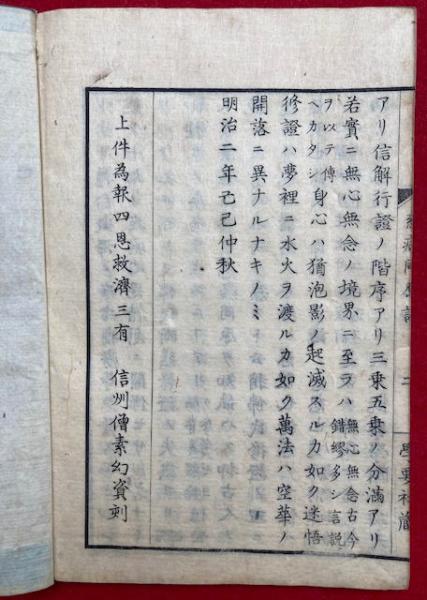 アリ信解行證ノ階序アリ三乗五乗ノ分滿アリ
若實ニ無心無念ノ境界ニ至ラハ無心無念古今錯繆多シ言説
ヲ以テ傳ヘカタシ身心ハ猶泡影ノ起滅スルカ如ク迷悟
修證ハ夢裡ニ水火ヲ渡ルカ如ク萬法ハ空華ノ
開落ニ異ナルナキノミ
明治二年己巳仲秋
上件為報四恩救濟三有 信州僧素幻資刻
二